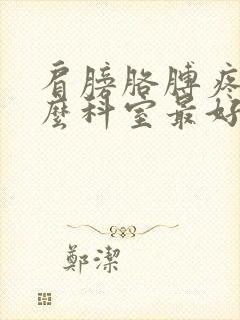 肩膀胳膊疼
麼科室最好
鄭潔